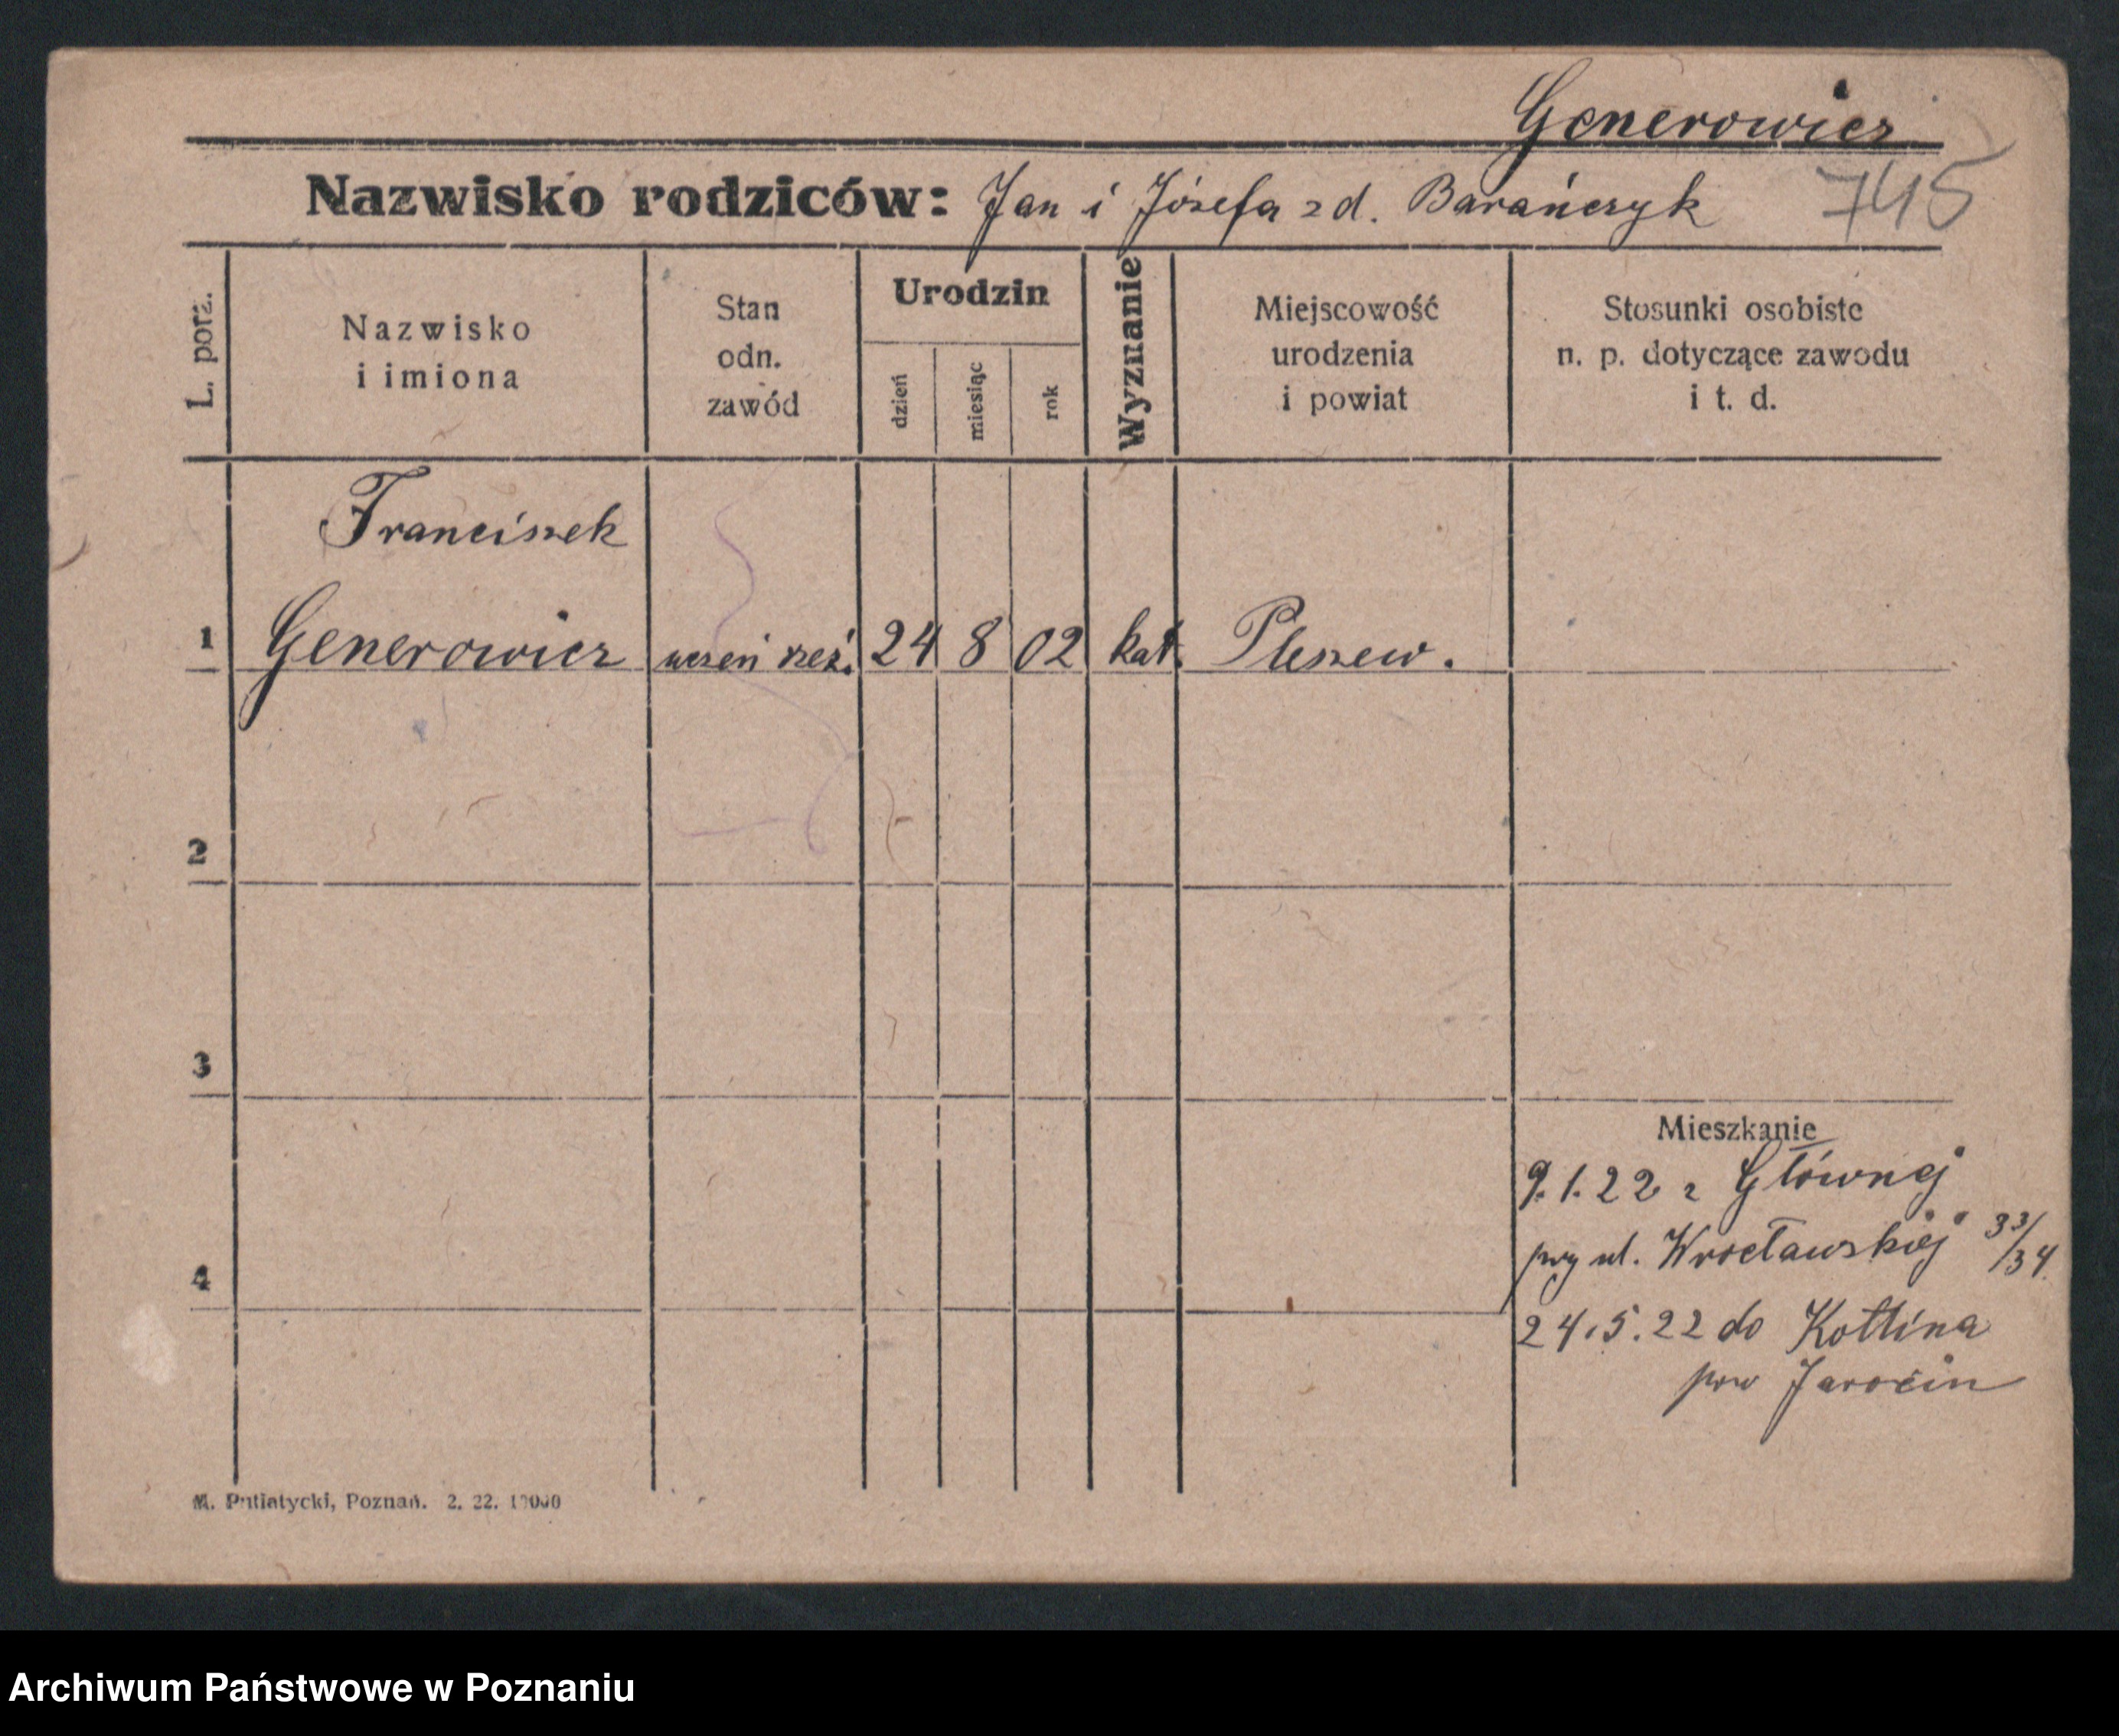 Generowicz
745
Nazwisko rodziców: Jan i Józefa z d. Barańczyk
L. porz.
Nazwisko
i imiona
Stan
odn.
zawód
Urodzin
dzień
miesiąc
rok
Wyznanie
Miejscowość
urodzenia
i powiat
Stosunki osobiste
n. p. dotyczące zawodu
i t. d.
Franciszek
1 Generowicz uczeń rzeź. 24 8 02 kat. Pleszew.
2
3
Mieszkanie
9.1.22 z Głównej
przy ul. Wrocławskiej 33/34.
4
24.5.22 do Kotlina
pow Jarocin
M. Putiatycki, Poznań. 2. 22. 10000
Archiwum Państwowe w Poznaniu